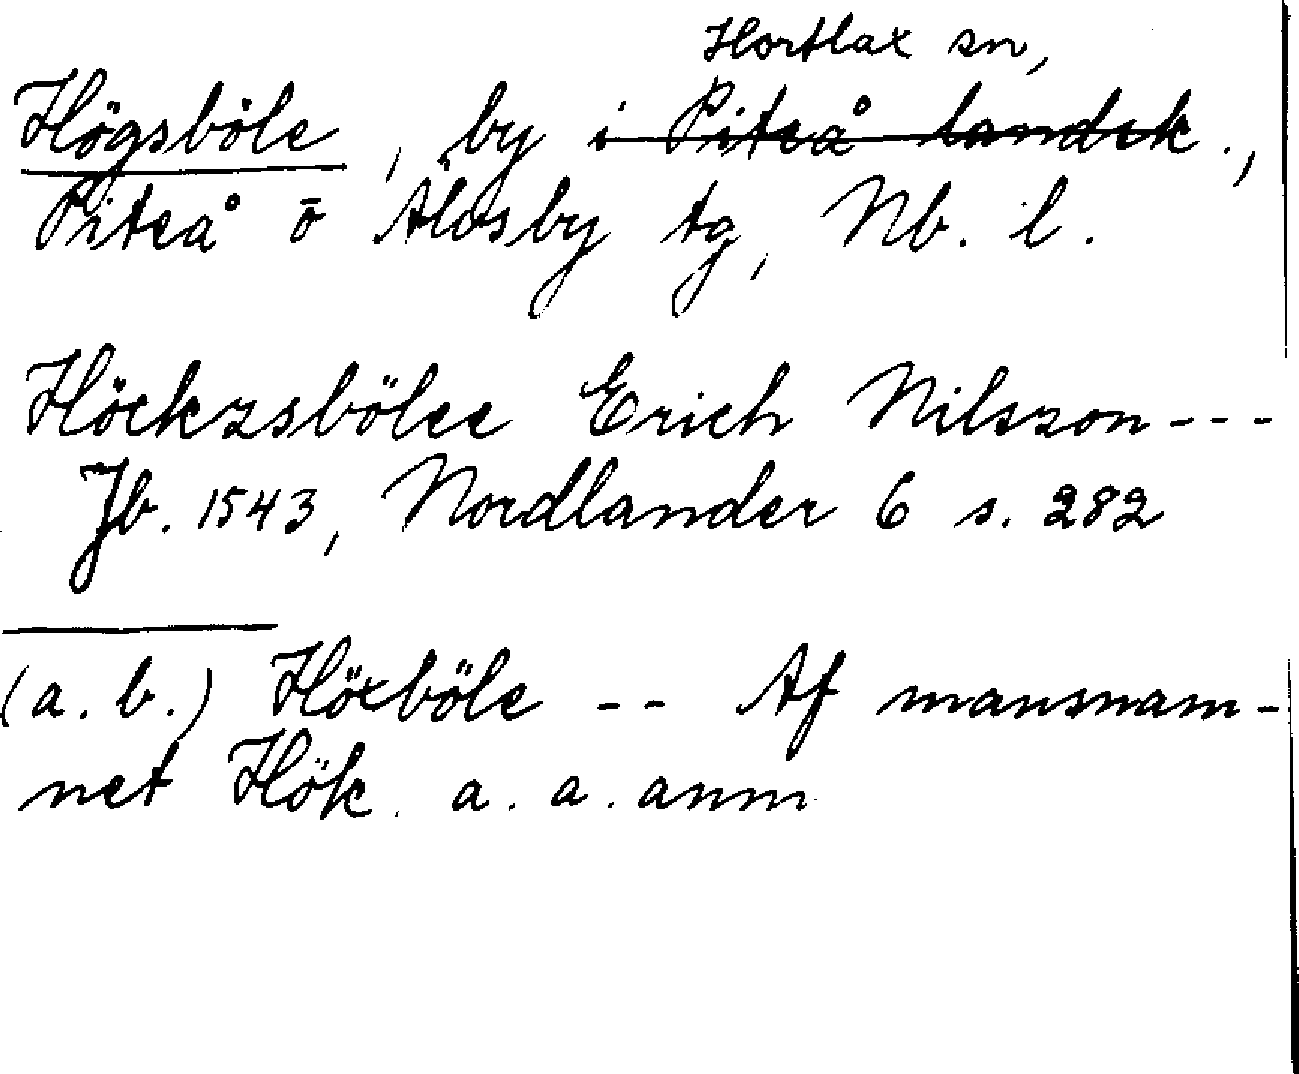 Hortlax sn,
Högsböle, by i Piteå landsk.,
Piteå o Älvsby tg, Nb. l.
Höckzsbölee Erich Nilszon---
Jb. 1543, Nordlander 6 s. 282
(a. b.) Höxböle -- Af mansnam-
net Hök. a. a. anm